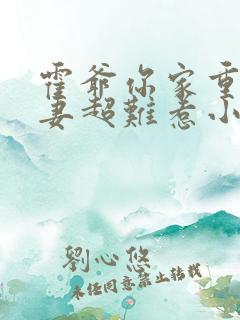 霍爷你家重
妻超难惹小
刘心悠
未经同意禁止转载